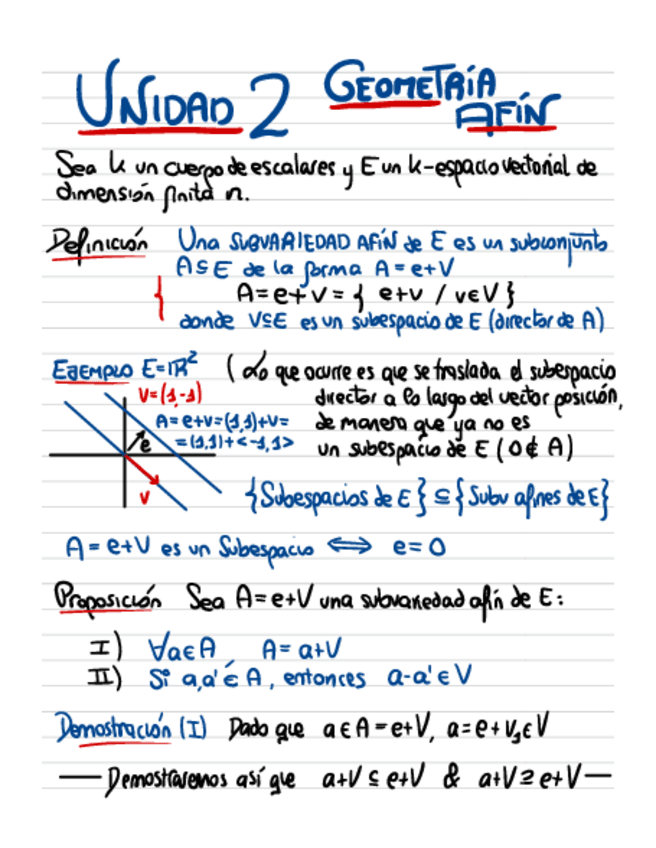 UNIDAD 2 GEOMETRÍA AFÍN
Sea k un cuerpo de escalares y E un k-espacio vectorial de
dimensión finita n.
Definición Una SUBVARIEDAD AFÍN de E es un subconjunto
A⊆E de la forma A=e+V
A=e+V={ e+v / v∈V }
donde V⊆E es un subespacio de E (director de A)
EJEMPLO E=ℝ² (Lo que ocurre es que se traslada el subespacio
V=(1,-1) director a lo largo del vector posición,
A=e+V=(1,1)+V= de manera que ya no es
=(1,1)+<-1,1> un subespacio de E (0∉A)
e
V
{Subespacios de E}⊆{Subv afines de E}
A=e+V es un Subespacio ⟺ e=0
Proposición Sea A=e+V una subvariedad afín de E:
I) ∀a∈A A=a+V
II) Si a,a'∈A, entonces a-a'∈V
Demostración (I) Dado que a∈A=e+V, a=e+v,∈V
— Demostraremos así que a+V⊆e+V & a+V⊇e+V —